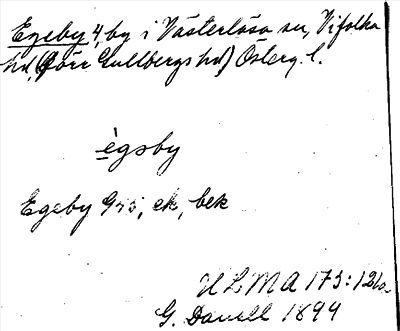 Egeby 4, by i Västerlösa sn, Vifolka
hd (förr Gullbergs hd) Österg. l.
ègsby
Egeby Grs, ek, bek
ULMA 173:121a
G. Danell 1894